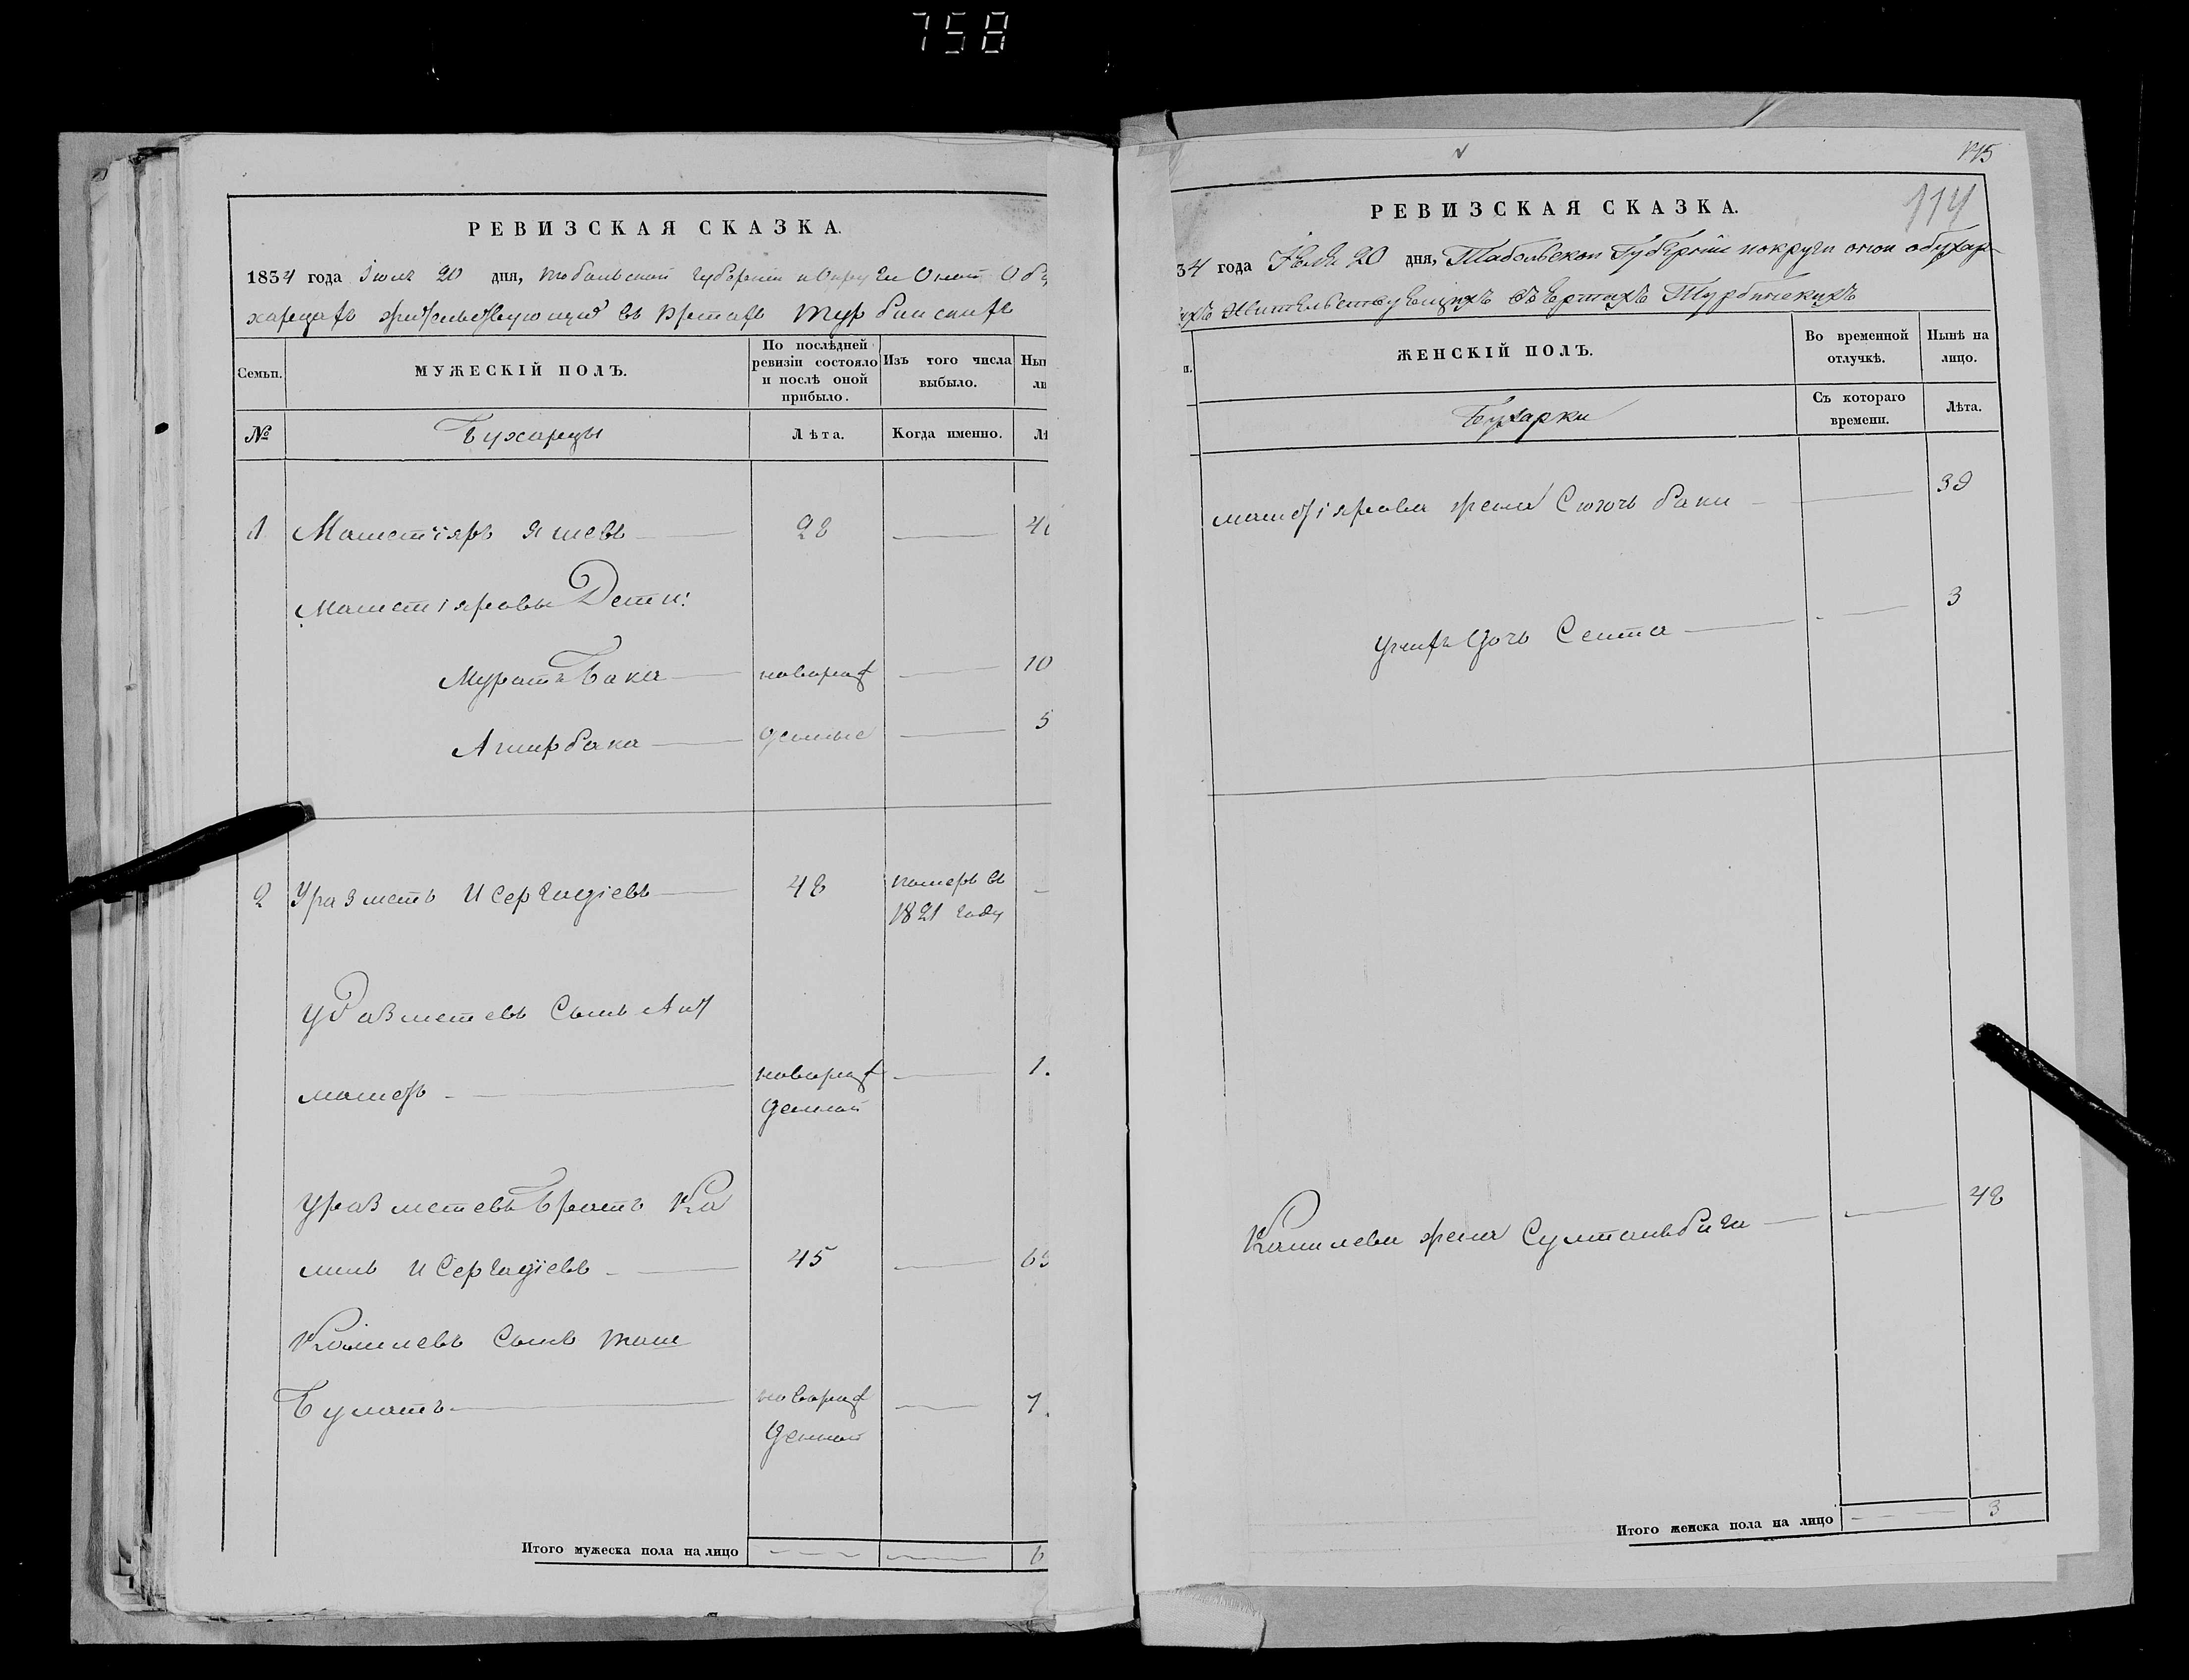 758
РЕВИЗСКАЯ СКАЗКА.
1834 года Июля 20 дня, тобольской губернии и округи Оной О бу
харцахъ жительствующихъ въ юртахъ Турбинскихъ
Семьи.
МУЖЕСКІЙ ПОЛЪ.
По послѣдней ревизіи состояло и послѣ оной прибыло.
Изъ того числа выбыло.
Нын
ли
№
Бухарцы
Лѣта.
Когда именно.
Лѣ
1 Маметіяръ Яшевъ 28
Маметіяровы Дети:
Муратъ Бака новорож 10
Аширбака денные 5
2 Уразметъ Исергадіевъ 48 померъ въ
1821 году
Уразметевъ Сынъ Аит
маметъ новорож
денной
Уразметевъ Братъ Ка
милъ Исергадіевъ 45
Камилевъ Сынъ таш
Булатъ новорож 7
денной
Итого мужеска пола на лицо 6
175
114
РЕВИЗСКАЯ СКАЗКА.
34 года Июля 20 дня, Табольской Губерніи и округи оной о бухар
цахъ жительствующихъ въ Юртахъ Турбинскихъ
и.
ЖЕНСКІЙ ПОЛЪ.
Во временной отлучкѣ.
Нынѣ на лицо.
Бухарки
Съ котораго времени.
Лѣта.
маметіярова жена Сююч баки 39
у нихъ дочь Сеита 3
Камилева жена Султанъбига 48
Итого женска пола на лицо 3